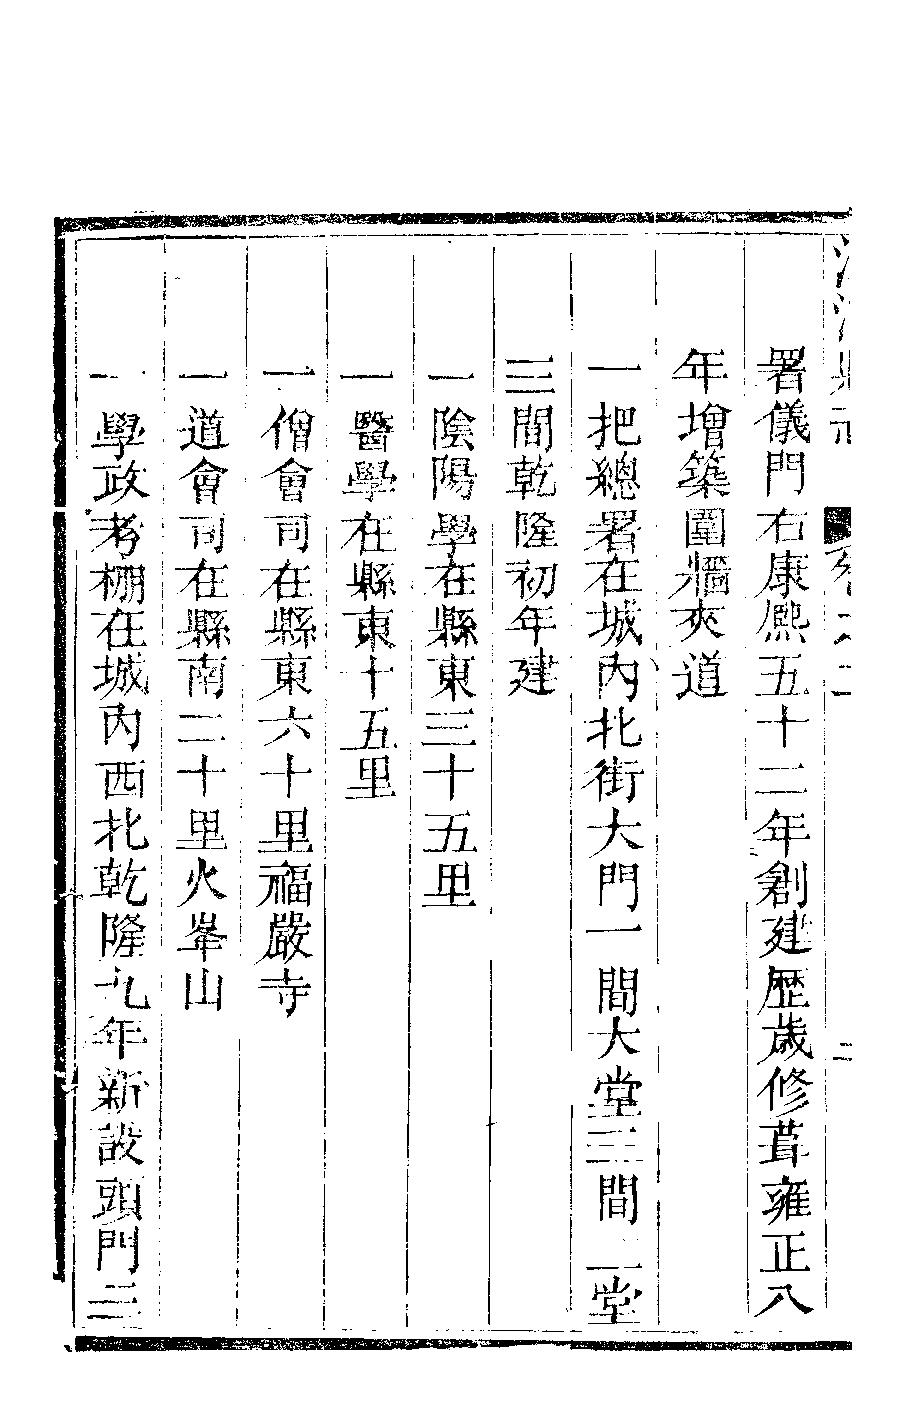 署儀門右康熙五十二年創建歷歲修葺雍正八
年增築圍牆夾道
一把總署在城內北街大門一間大堂三間二堂
三間乾隆初年建
一陰陽學在縣東三十五里
一醫學在縣東十五里
一僧會司在縣東六十里福嚴寺
一道會司在縣南二十里火峯山
一學政考棚在城內西北乾隆九年新設頭門三